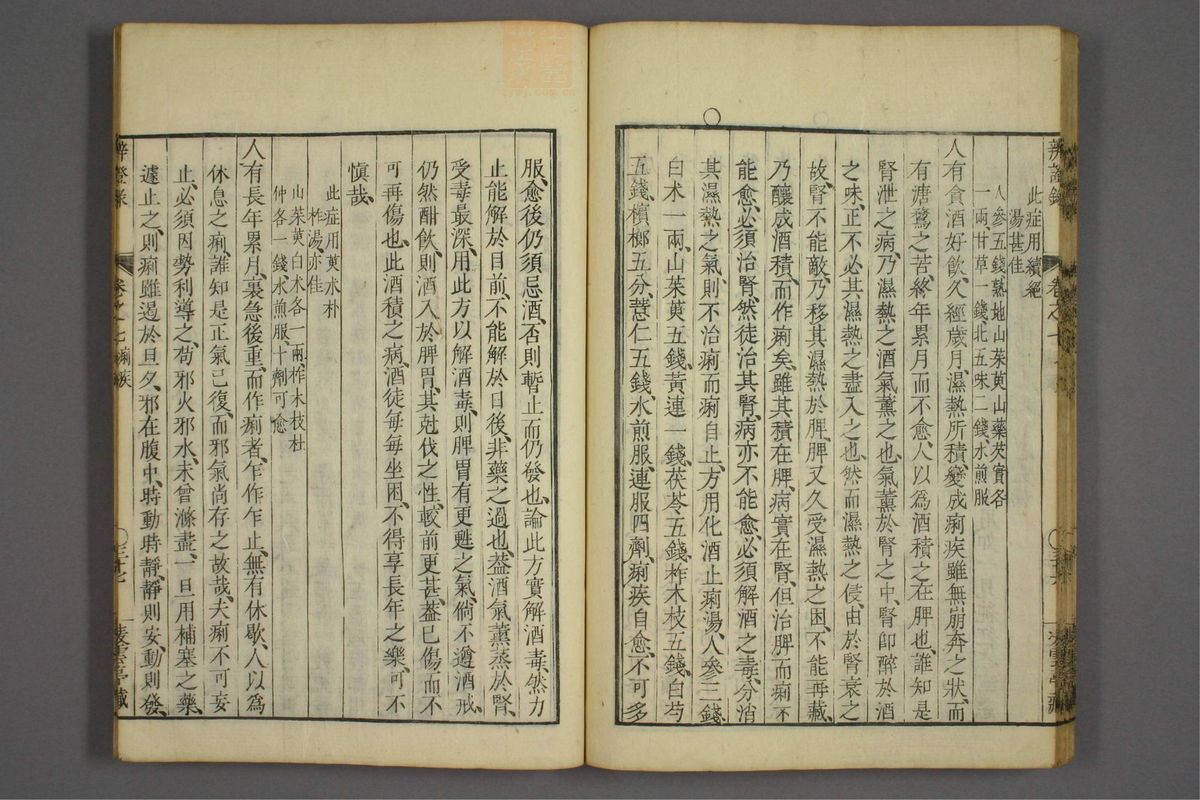 辨證錄
卷之七
此症用續絕
湯甚佳
人參五錢熟地山茱萸山藥芡實各
一兩甘草一錢北五味二錢水煎服
人有貪酒好飲久經歲月濕熱所積變成痢疾雖無崩奔之狀而
有溏鶩之苦終年累月而不愈人以為酒積之在脾也誰知是
腎泄之病乃濕熱之酒氣薰之也氣薰於腎之中腎卽醉於酒
之味正不必其濕熱之盡入之也然而濕熱之侵由於腎衰之
故腎不能敵乃移其濕熱於脾脾又久受濕熱之困不能再藏
乃釀成酒積而作痢矣雖其積在脾病實在腎但治脾而痢不
能愈必須治腎然徒治其腎病亦不能愈必須解酒之毒分消
其濕熱之氣則不治痢而痢自止方用化酒止痢湯人參三錢
白术一兩山茱萸五錢黃連一錢茯苓五錢柞木枝五錢白芍
五錢檳榔五分薏仁五錢水煎服連服四劑痢疾自愈不可多
服愈後仍須忌酒否則暫止而仍發也論此方實解酒毒然力
止能解於目前不能解於日後非藥之過也葢酒氣薰蒸於腎
受毒最深用此方以解酒毒則脾胃有更甦之氣倘不遵酒戒
仍然酣飲則酒入於脾胃其尅伐之性較前更甚葢已傷而不
可再傷也此酒積之病酒徒每每坐困不得享長年之樂可不
慎哉
此症用萸水朴
柞湯亦佳
山茱萸白木各一兩柞木枝杜
仲各一錢水煎服十劑可愈
人有長年累月裏急後重而作痢者乍作乍止無有休歇人以為
休息之痢誰知是正氣已復而邪氣尚存之故哉夫痢不可妄
止必須因勢利導之苟邪火邪水未曾滌盡一旦用補塞之藥
遽止之則痢雖遏於旦夕邪在腹中時動時靜靜則安動則發
辨證錄
卷之七
痢疾
三十七